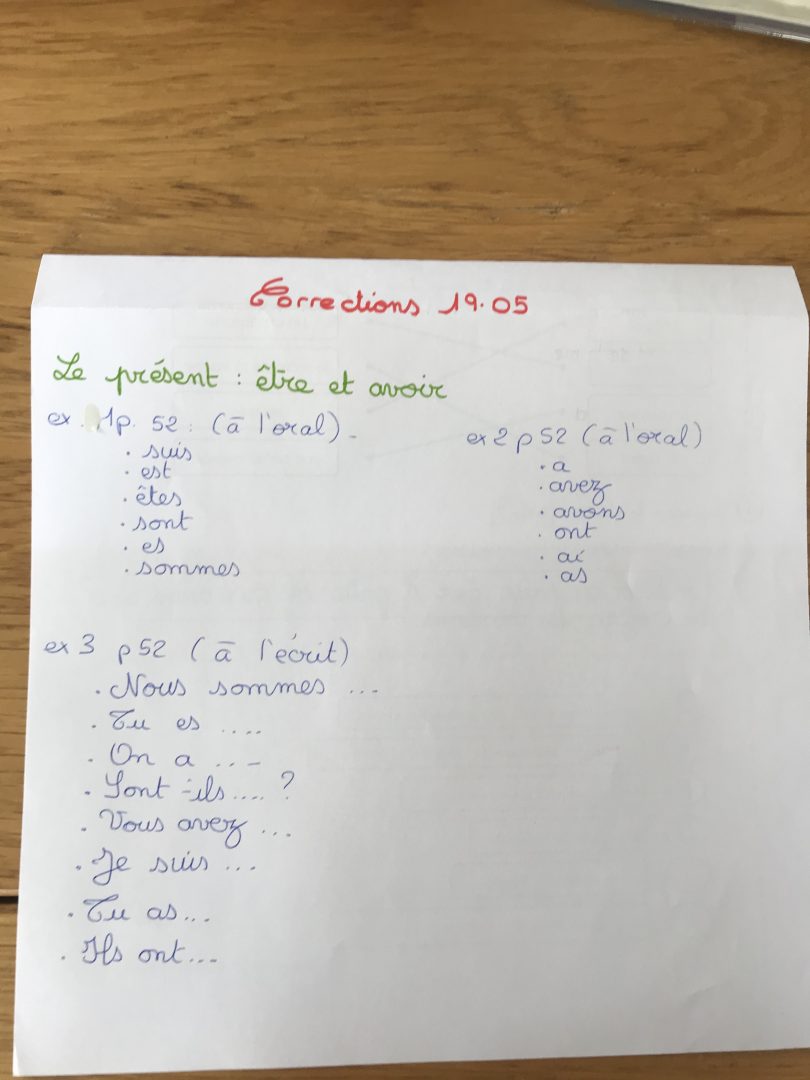 Corrections 19.05
Le présent : être et avoir
ex. 1p. 52 : (à l'oral).
. suis
. est
. êtes
. sont
. es
. sommes
ex 2 p 52 (à l'oral)
. a
. avez
. avons
. ont
. ai
. as
ex 3 p 52 (à l'écrit)
. Nous sommes ...
. Tu es ....
. On a ...
. Sont-ils .... ?
. Vous avez ...
. Je suis ...
. Tu as...
. Ils ont...